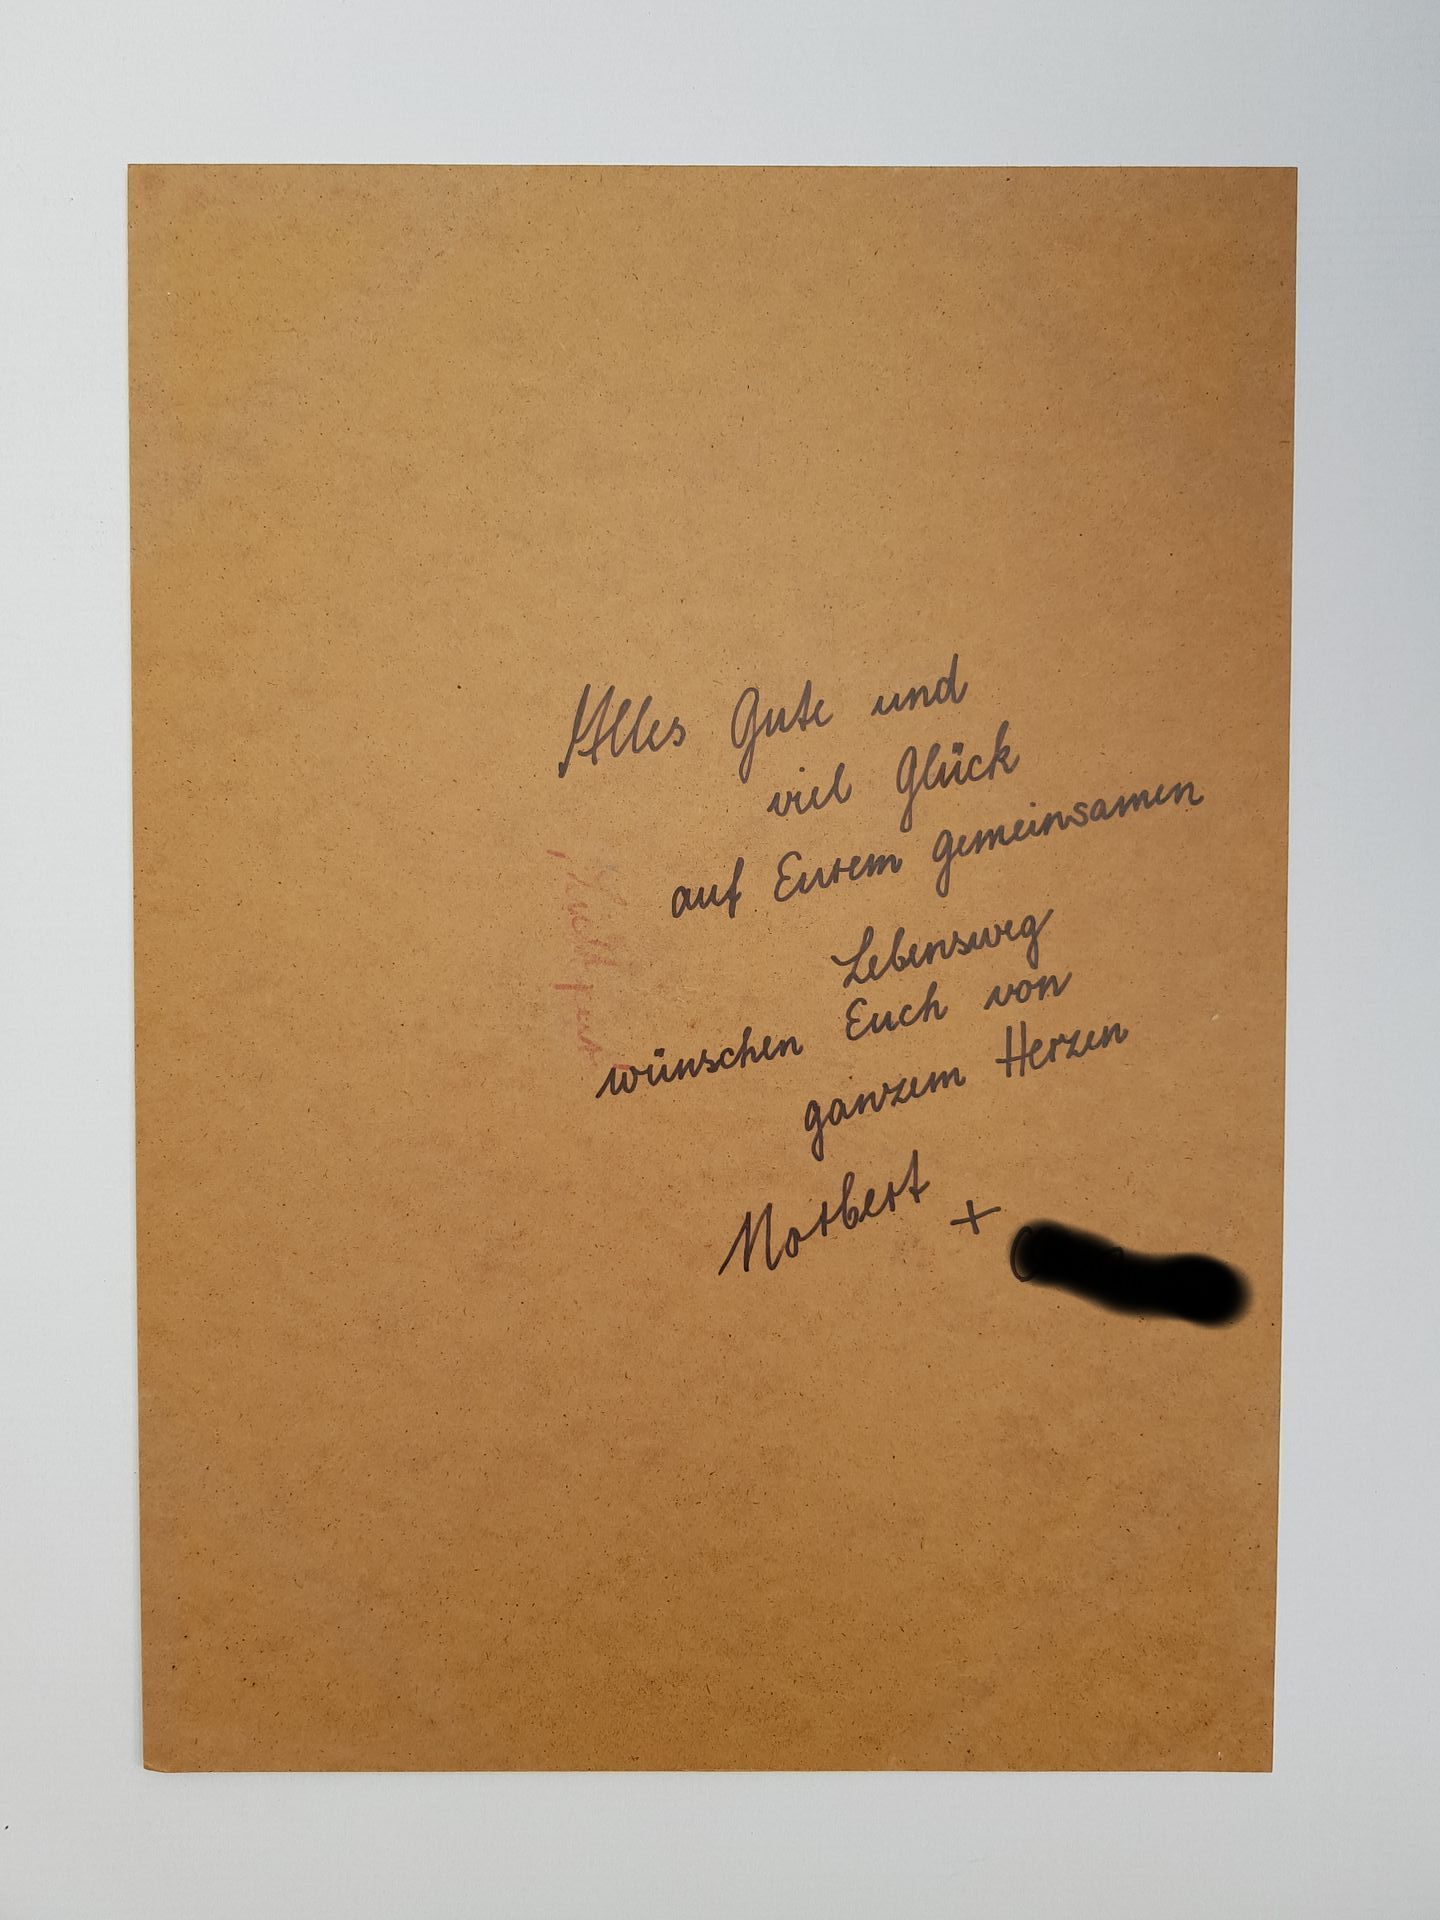 Alles Gute und
viel Glück
auf Eurem gemeinsamen
Lebensweg
wünschen Euch von
ganzem Herzen
Norbert +